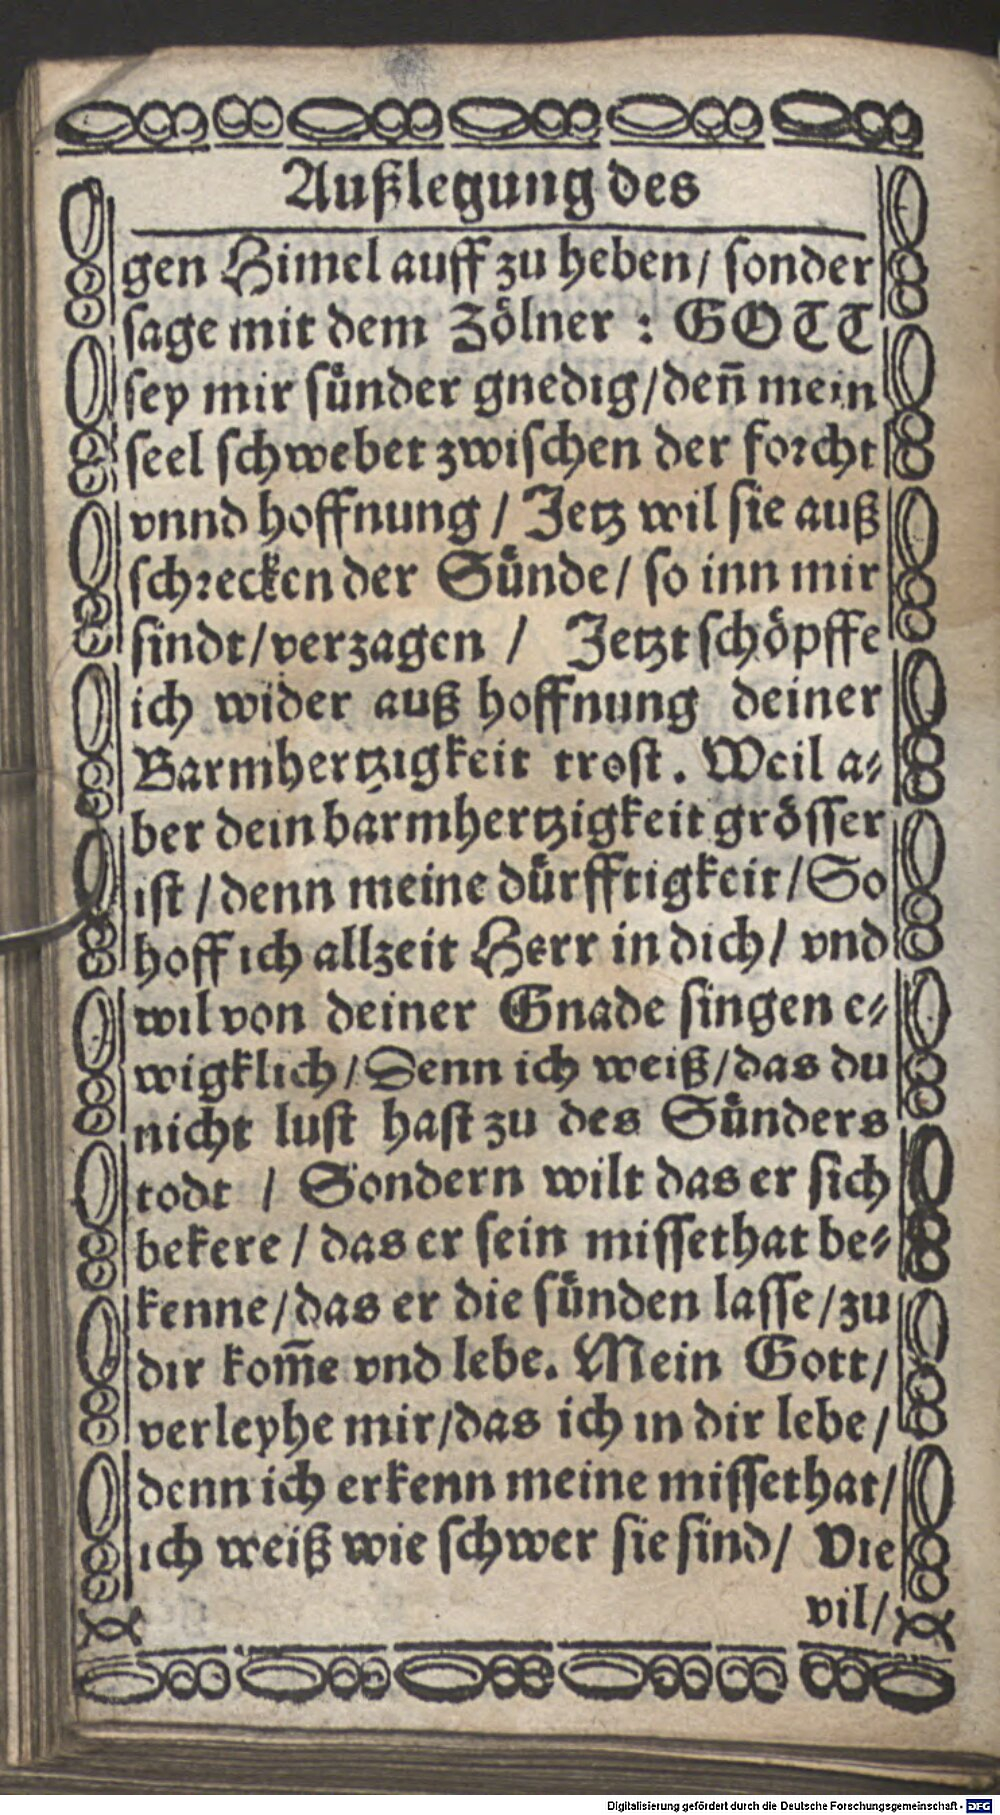 Außlegung des
gen Himel auff zu heben/ sonder
sage mit dem Zölner : GOTT
sey mir sünder gnedig/deñ mein
seel schwebet zwischen der forcht
vnnd hoffnung / Jetz wil sie auß
schrecken der Sünde/ so inn mir
sindt/verzagen / Jetzt schöpffe
ich wider auß hoffnung deiner
Barmhertzigkeit trost. Weil a⸗
ber dein barmhertzigkeit grösser
ist / denn meine dürfftigkeit/So
hoff ich allzeit Herr in dich/ vnd
wil von deiner Gnade singen e⸗
wigklich/ Denn ich weiß/das du
nicht lust hast zu des Sünders
todt / Sondern wilt das er sich
bekere / das er sein missethat be⸗
kenne/das er die sünden lasse/zu
dir kom̄e vnd lebe. Mein Gott/
verleyhe mir/das ich in dir lebe/
denn ich erkenn meine missethat/
ich weiß wie schwer sie sind/ Vie
vil/
Digitalisierung gefördert durch die Deutsche Forschungsgemeinschaft - DFG